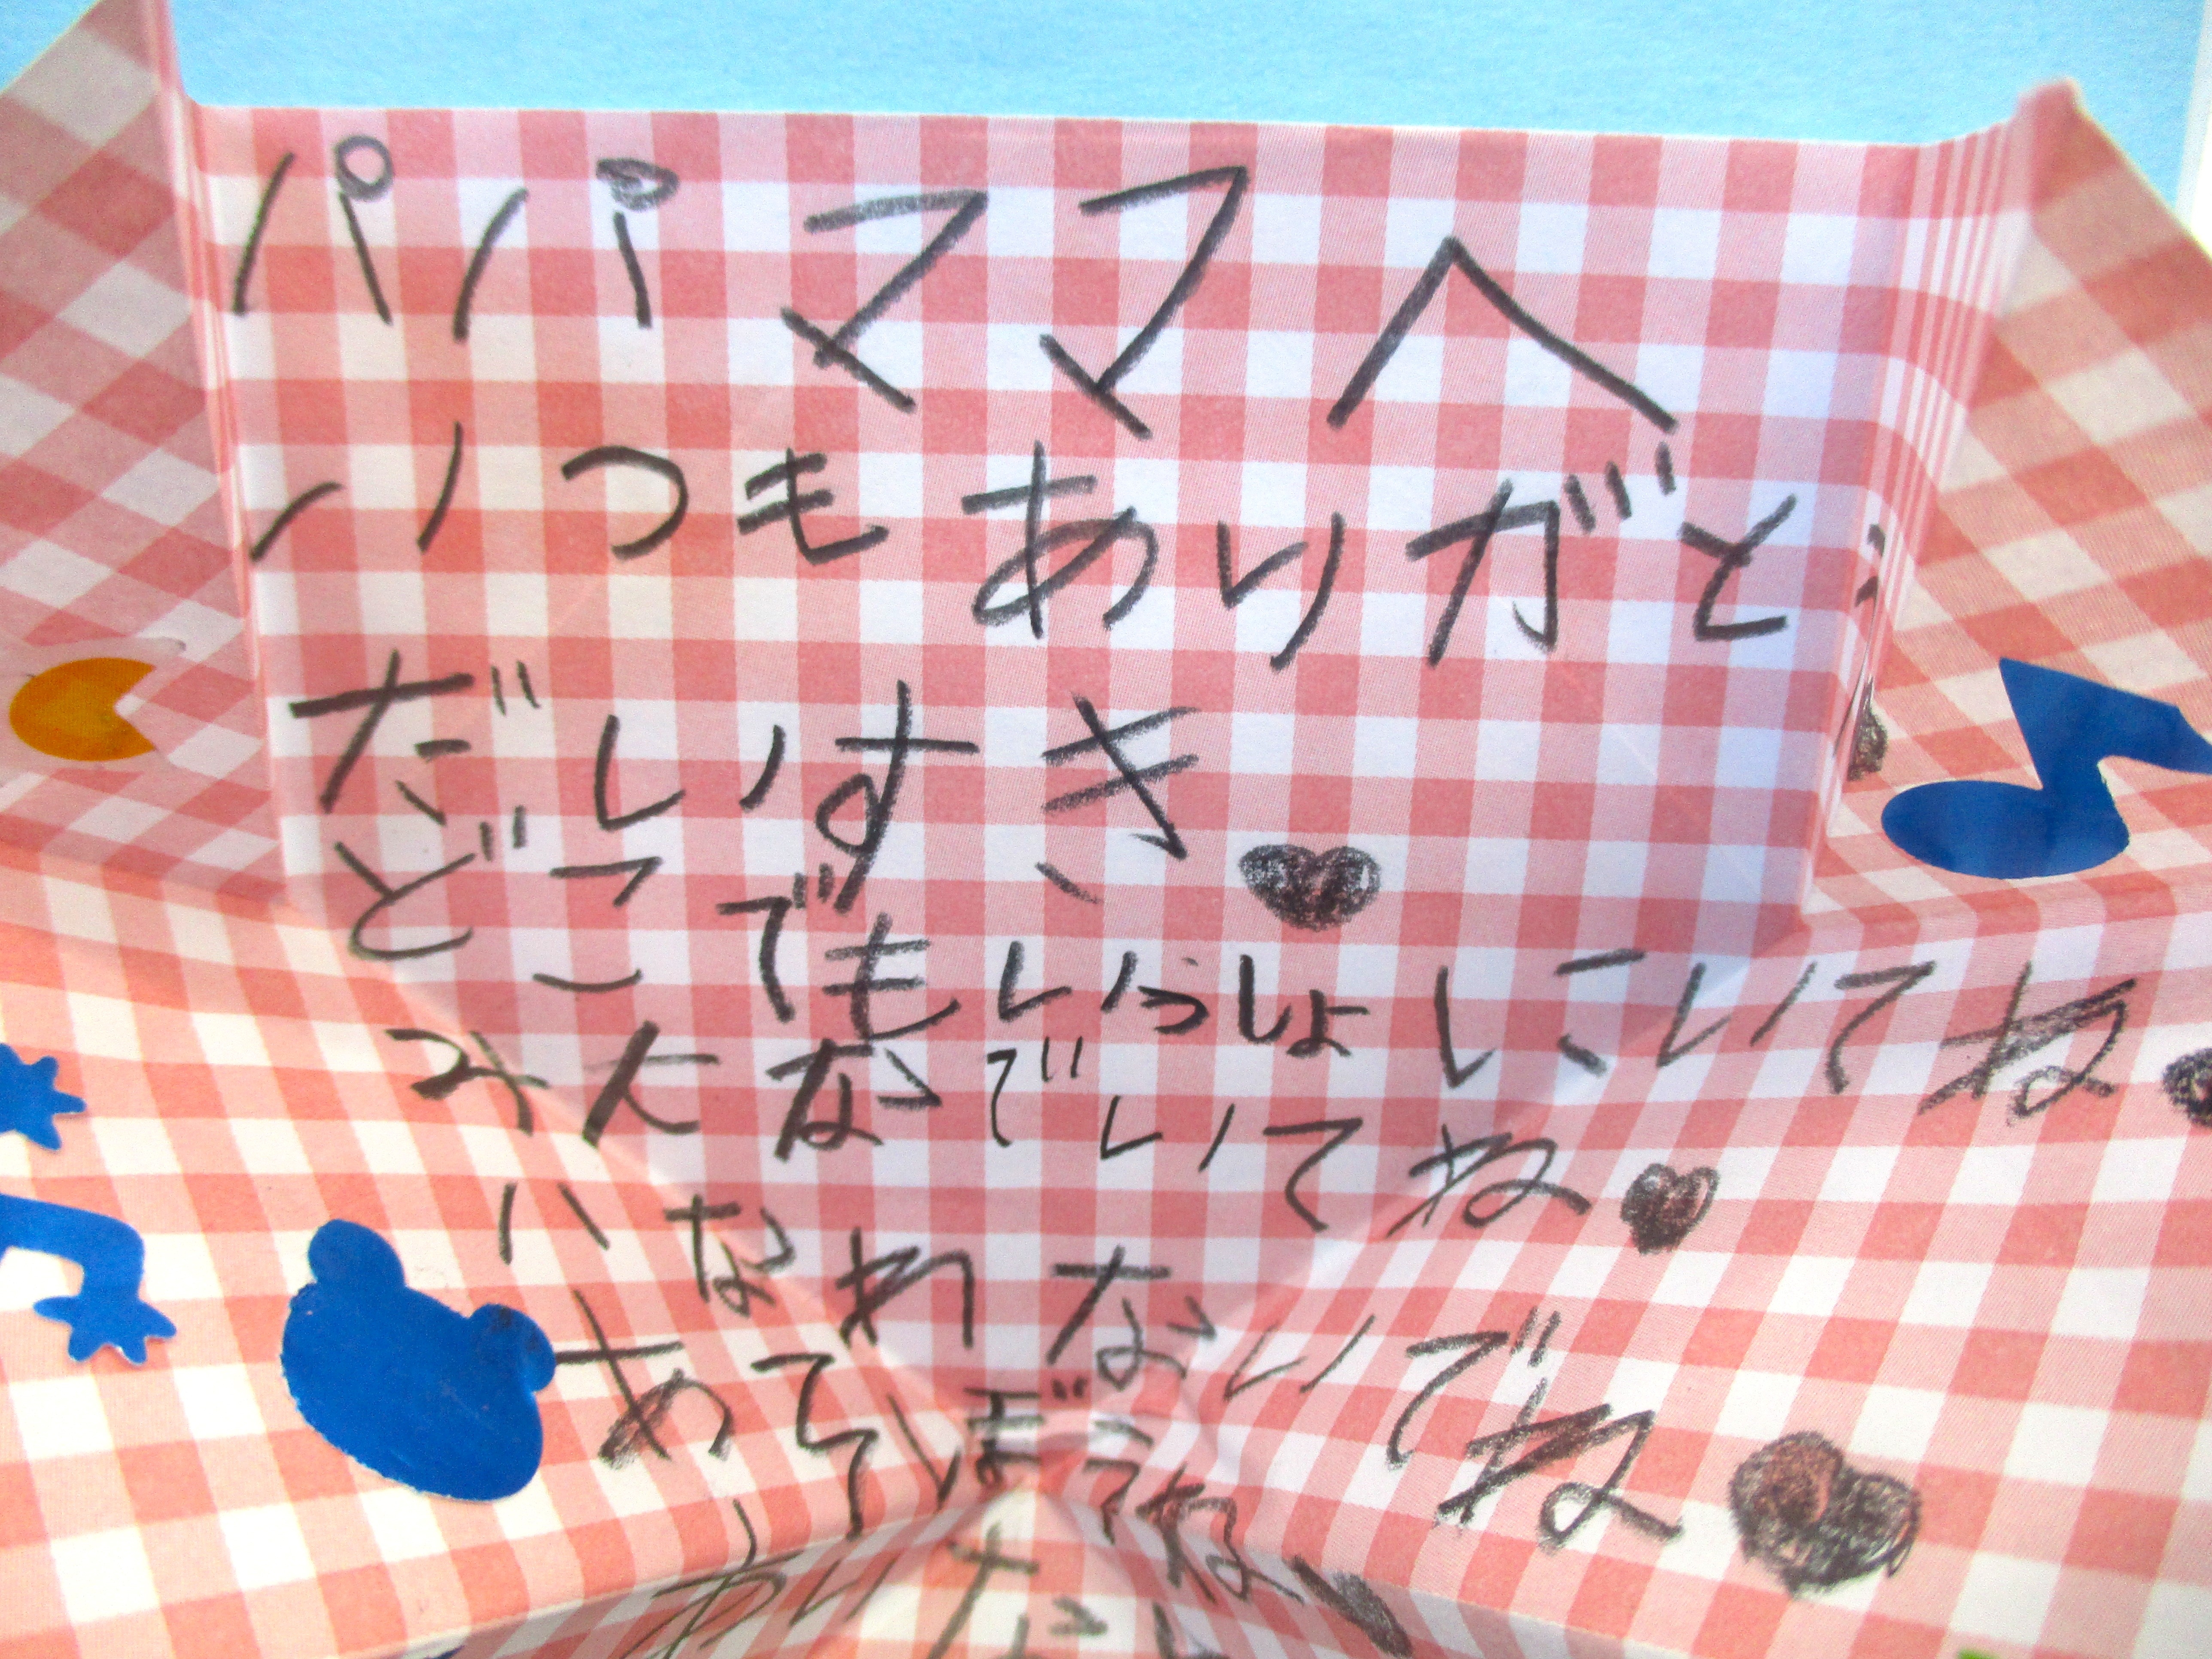 パパママへ
いつもありがと
だいすき
どこでもいっしょにいてね
みんなでいてね
はなれないでね